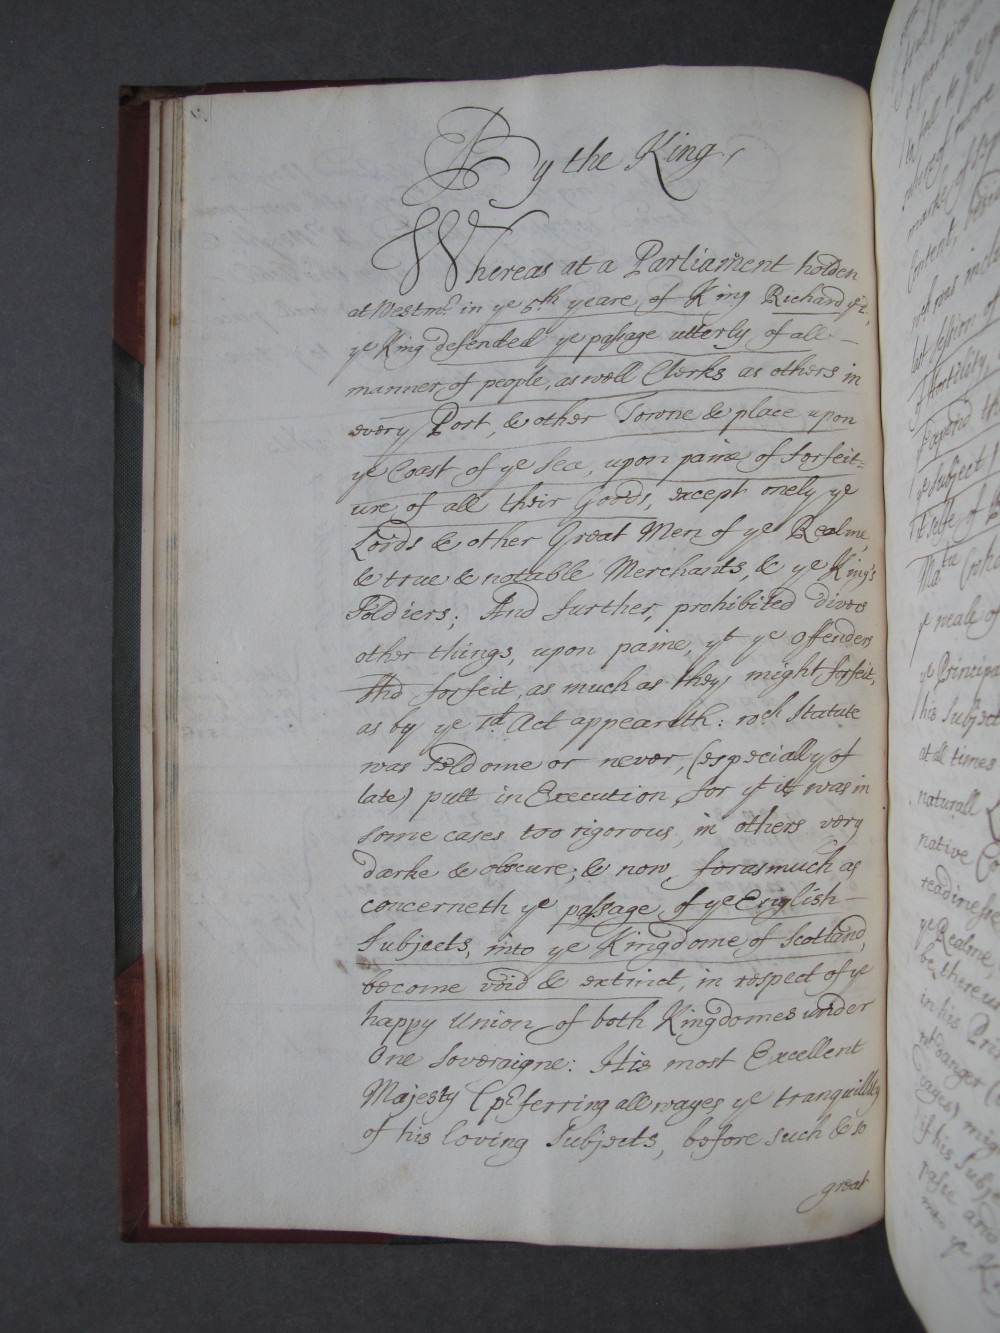 By the King,
Whereas at a Parliament holden
at Westmr in ye 5th yeare of King Richard ye 2.
ye King defended ye passage utterly of all
manner of people, as well Clerks as others in
every Port, & other Towne & place upon
ye Coast of ye Sea, upon paine of forfeit=
ure of all their Goods, except onely ye
Lords & other Great Men of ye Realme,
& true & notable Merchants, & ye King's
Soldiers; And further, prohibited divers
other things, upon paine, yt ye Offenders
And forfeit, as much as they might forfeit,
as by ye sd Act appeareth: wch Statute
was Seldome or never, (especially of
late) putt in Execution, for yt it was in
some cases too rigorous, in others very
darke & obscure; & now, forasmuch as
concerneth ye passage of ye English
Subjects, into ye Kingdome of Scotland,
become void & extinct, in respect of ye
happy Union of both Kingdomes under
One Soveraigne: His most Excellent
Majesty (pferring all wayes ye tranquillity
of his loving Subjects, before such & so
great
ye Subject
ye Principa
his Subject
at all times
naturall
native
readinesse
ye Realme,
in his
danger
if his Subje